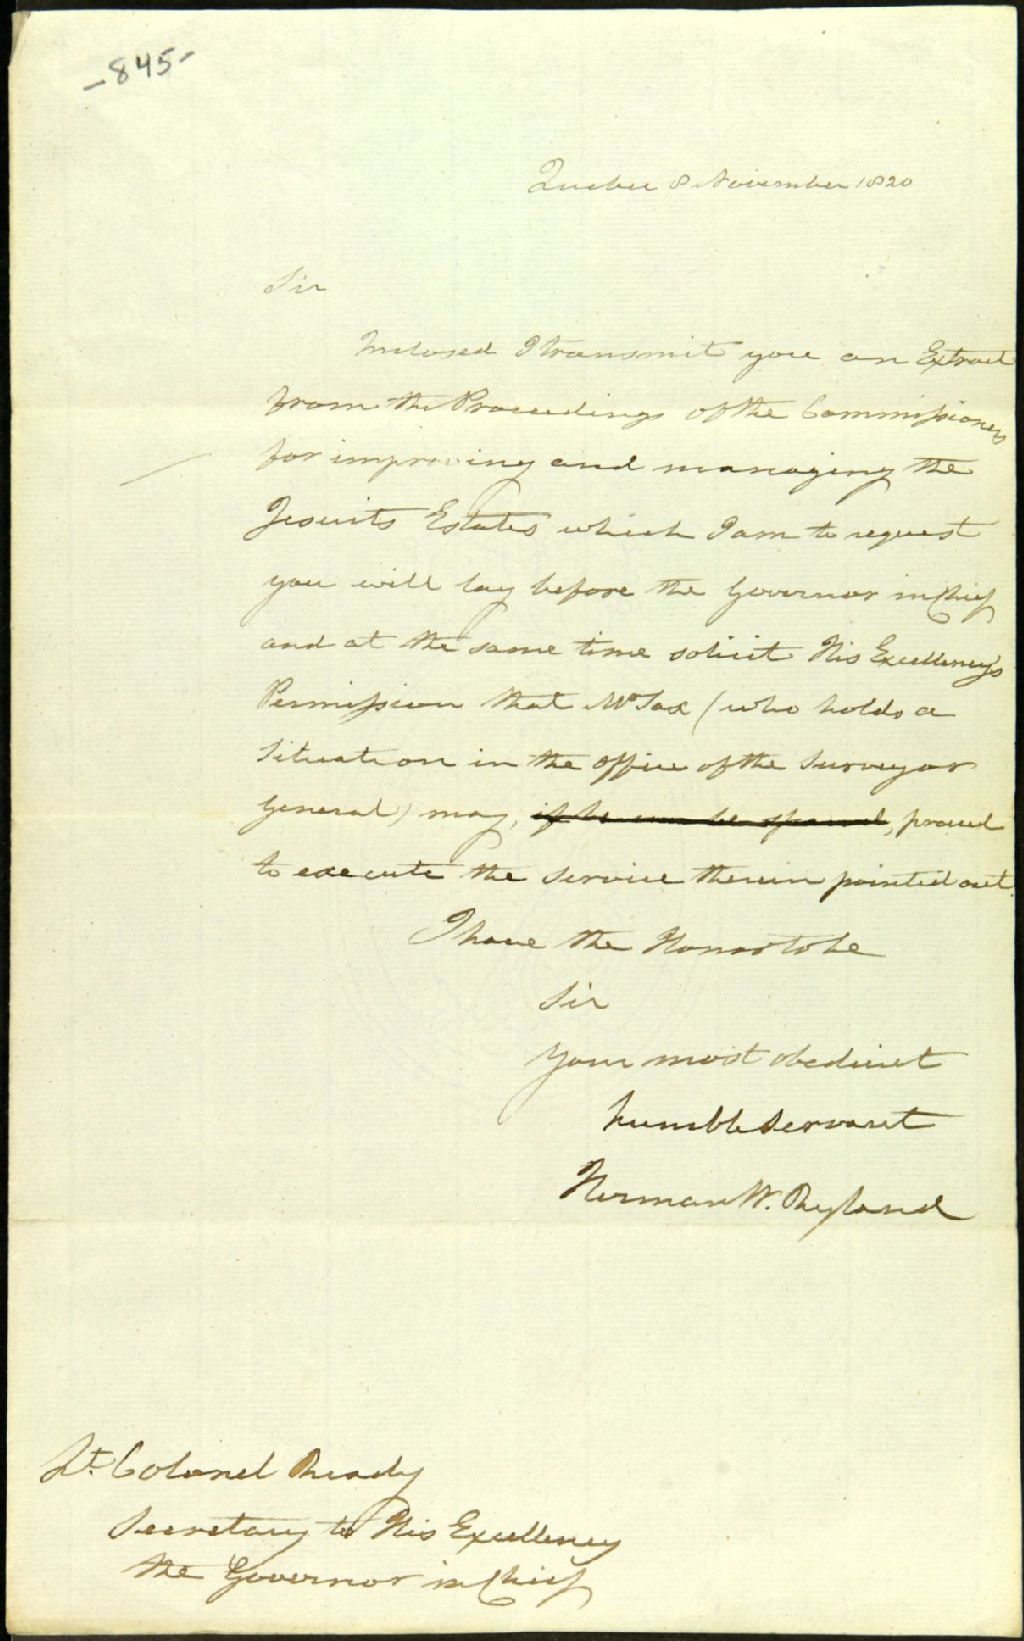 -845-
Quebec 8 November 1820
Sir
Inclosed I transmit you an Extract
from the Proceedings of the Commissioners
for improving and managing the
Jesuits Estates which I am to request
you will lay before the Governor in Chief
and at the same time solicit His Excellency's
Permission that Mr Sax (who holds a
Situation in the office of the Surveyor
General) may, if he can be spared, proceed
to execute the service therein pointed out.
I have the Honor to be
Sir
Your most obedient
humble Servant
Herman W. Ryland
Lt. Colonel Ready
Secretary to His Excellency
the Governor in Chief